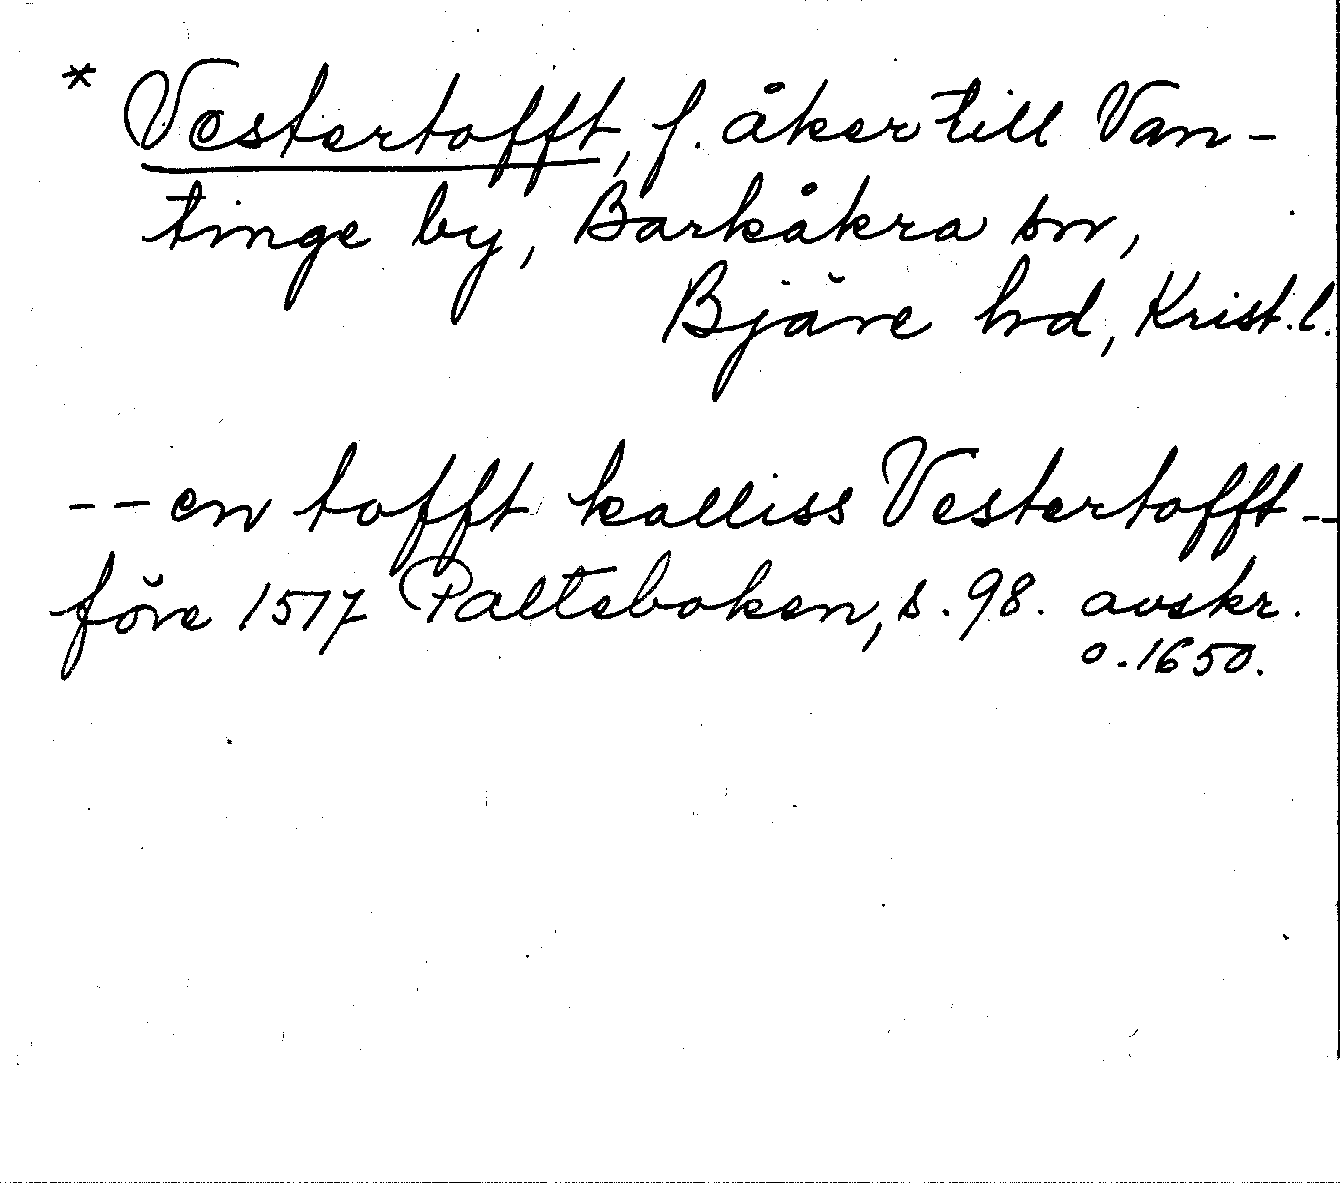 * Vestertofft, f. åker till Van-
tinge by, Barkåkra sn,
Bjäre hd, Krist.l.
-- en tofft kalliss Vestertofft --
före 1517 Palteboken, s. 98. avskr.
o. 1650.